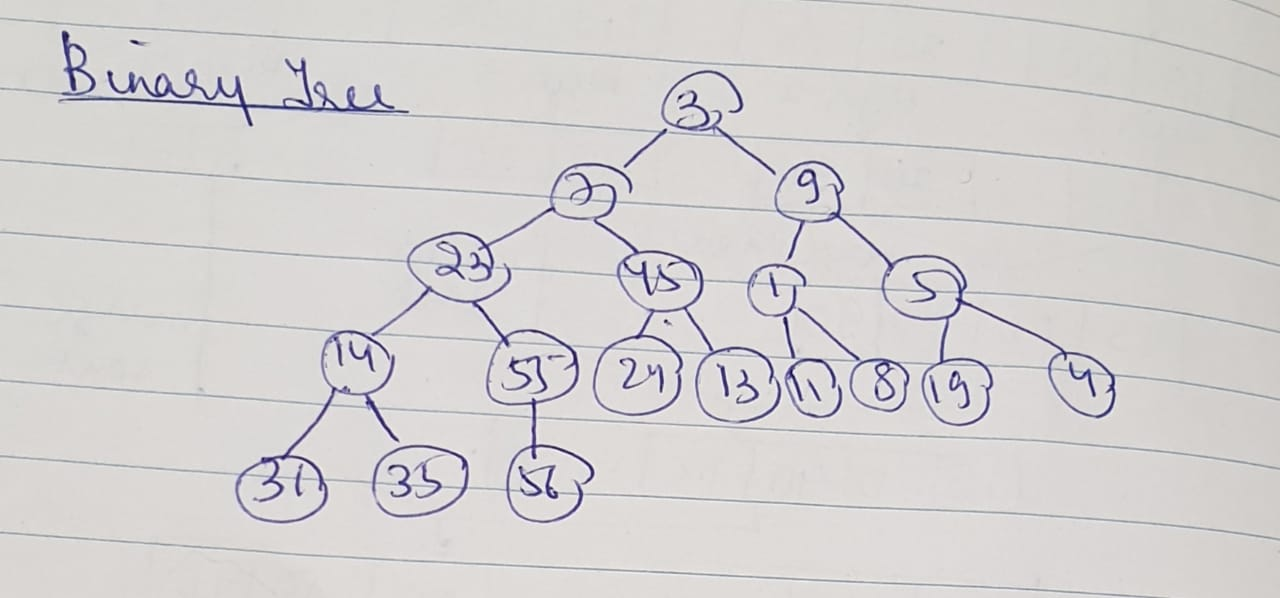 Binary Tree
3
9
23 45 1 5
14 13 11 8 19 4
31 35 56